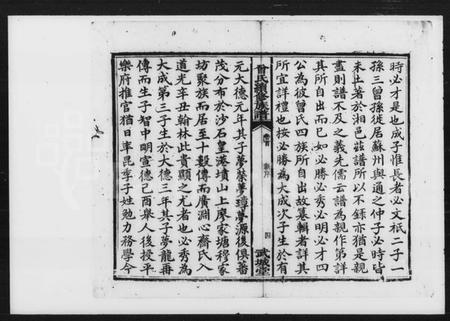 時必才是也成子惟長者必文祇二子一
孫三曾孫徙居蘇州與通之仲子必時皆
未土著於湘邑茲譜所以不録亦猶是親
盡則譜不及之義先儒云譜為親作第詳
其所自出而已如必勝必秀必明必才四
公為彼曾氏四族所自出故纂輯者詳其
所宜詳禮也按必勝為大成次子生於有
曾氏續修族譜
卷首
四
武城堂
元大德元年其子夢葵夢璋夢源後俱蕃
茂分布於沙石皇港墳山上廖家塘穆家
坊聚族而居至十穀傳而廣淵心齋氏入
道光辛丑翰林此貴顯之尤者也必秀為
大成第三子生於大德三年其子夢龍再
傳而生子智中明宣德己酉舉人後授平
樂府推官猶日率昆季子姓勉力務學今